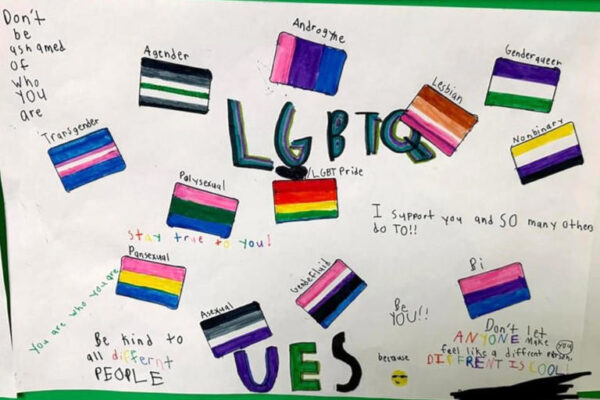 Don't
be
ashamed
of
who
YOU
are
Agender
Androgyne
Genderqueer
Lesbian
LGBTQ
Transgender
Nonbinary
Polysexual
/LGBT Pride
stay true to you!
I support you and SO many others
do TO!!
Pansexual
Genderfluid
Bi
You are who you are
Asexual
Be
YOU!!
Be kind to
all differnt
PEOPLE
UES
because
Don't let
ANYONE make you
feel like a diffrent person
DIFFRENT IS COOL!